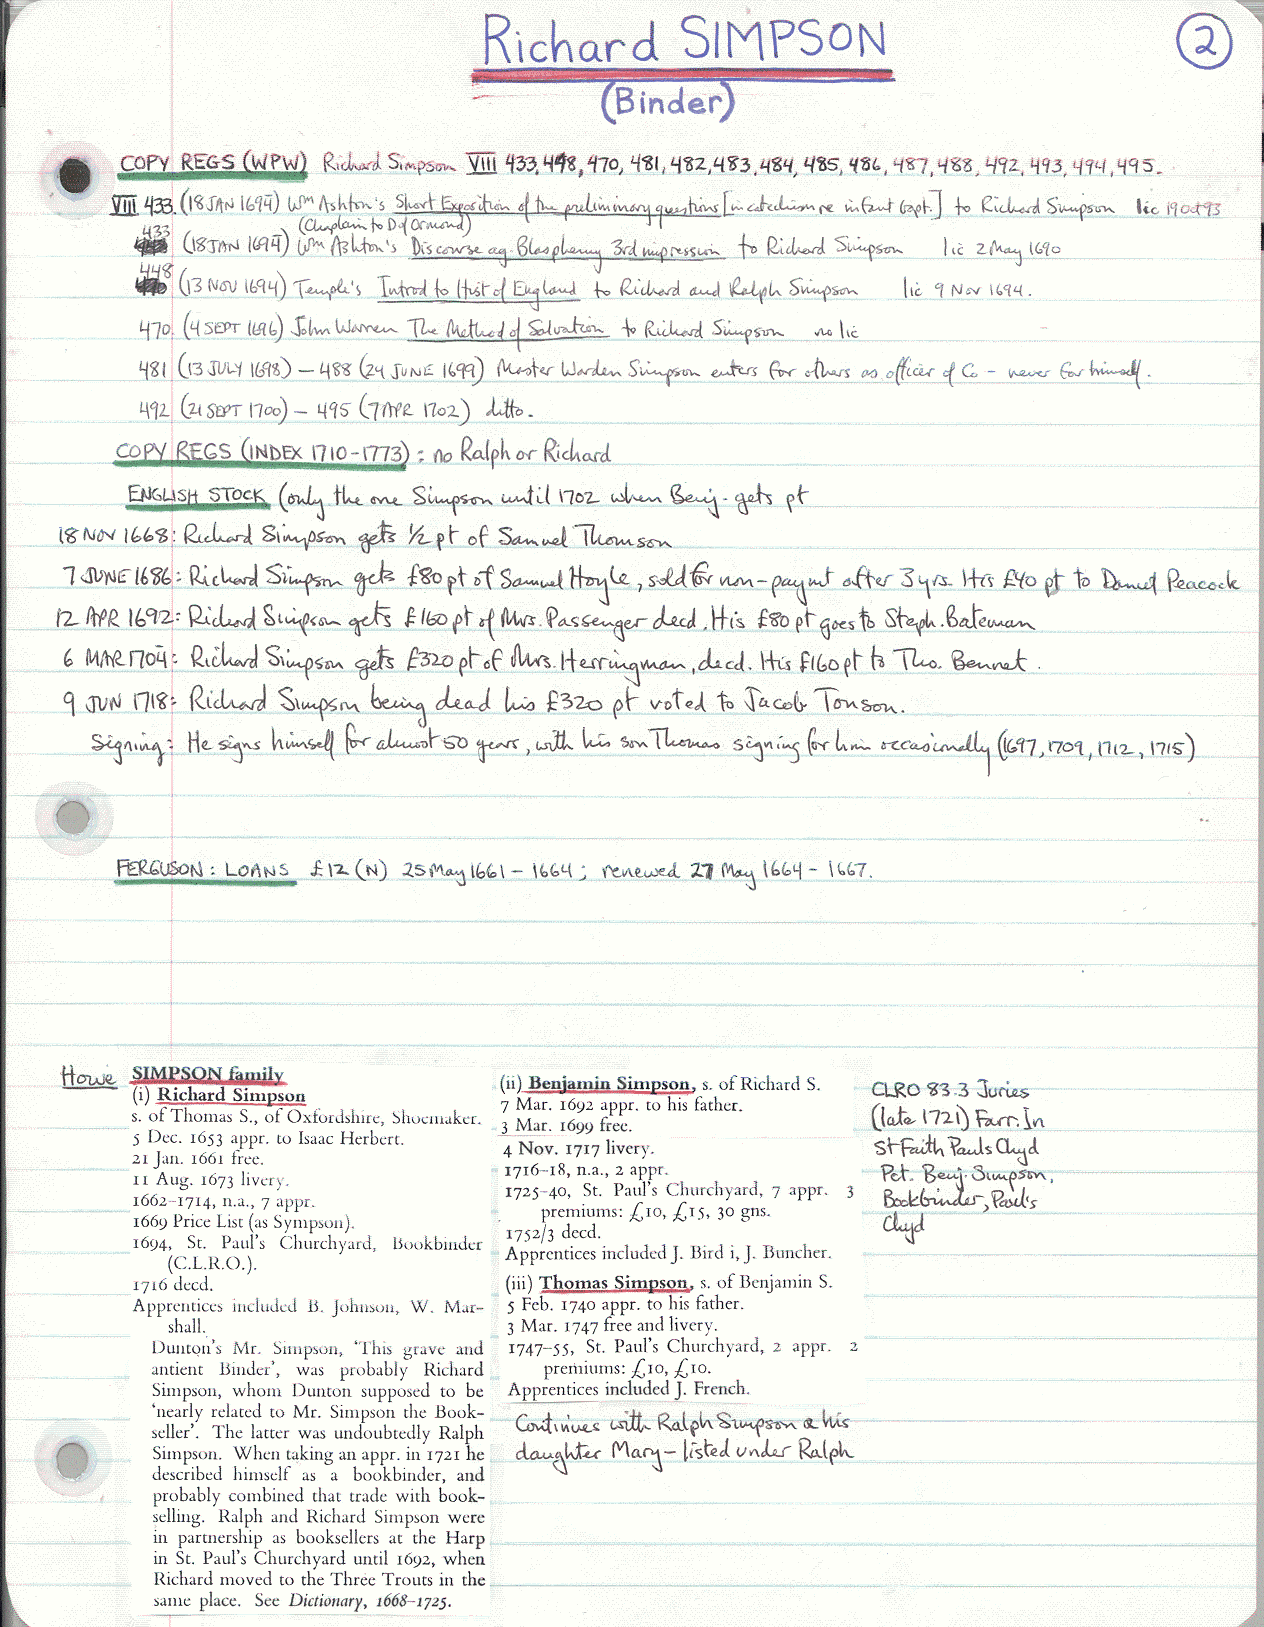 Richard SIMPSON
2
(Binder)
COPY REGS (WPW) Richard Simpson VIII 433, 448, 470, 481, 482, 483, 484, 485, 486, 487, 488, 492, 493, 494, 495.
VIII 433. (18 JAN 1694) Wm Ashton's Short Exposition of the preliminary questions [in catechism re infant bapt.] to Richard Simpson lic 19 Oct 93
(Chaplain to D of Ormond)
433 (18 JAN 1694) Wm Ashton's Discourse ag. Blasphemy 3rd impression to Richard Simpson lic 2 May 1690
448 (13 NOV 1694) Temple's Introd to Hist of England to Richard and Ralph Simpson lic 9 Nov 1694.
470. (4 SEPT 1696) John Warren The Method of Salvation to Richard Simpson no lic
481 (13 JULY 1698) – 488 (24 JUNE 1699) Master Warden Simpson enters for others as officer of Co – never for himself.
492 (21 SEPT 1700) – 495 (7 APR 1702) ditto.
COPY REGS (INDEX 1710-1773): no Ralph or Richard
ENGLISH STOCK (only the one Simpson until 1702 when Benj. gets pt
18 NOV 1668: Richard Simpson gets ½ pt of Samuel Thomson
7 JUNE 1686: Richard Simpson gets £80 pt of Samuel Hoyle, sold for non-paymt after 3 yrs. His £40 pt to Daniel Peacock
12 APR 1692: Richard Simpson gets £160 pt of Mrs. Passenger decd. His £80 pt goes to Steph. Bateman
6 MAR 1704: Richard Simpson gets £320 pt of Mrs. Herringman, decd. His £160 pt to Tho. Bennet.
9 JUN 1718: Richard Simpson being dead his £320 pt voted to Jacob Tonson.
Signing: He signs himself for almost 50 years, with his son Thomas signing for him occasionally (1697, 1709, 1712, 1715)
FERGUSON: LOANS £12 (N) 25 May 1661 – 1664; renewed 27 May 1664 – 1667.
Howe
SIMPSON family
(i) Richard Simpson
s. of Thomas S., of Oxfordshire, Shoemaker.
5 Dec. 1653 appr. to Isaac Herbert.
21 Jan. 1661 free.
11 Aug. 1673 livery.
1662–1714, n.a., 7 appr.
1669 Price List (as Sympson).
1694, St. Paul's Churchyard, Bookbinder
(C.L.R.O.).
1716 decd.
Apprentices included B. Johnson, W. Mar-
shall.
Dunton's Mr. Simpson, 'This grave and
antient Binder', was probably Richard
Simpson, whom Dunton supposed to be
'nearly related to Mr. Simpson the Book-
seller'. The latter was undoubtedly Ralph
Simpson. When taking an appr. in 1721 he
described himself as a bookbinder, and
probably combined that trade with book-
selling. Ralph and Richard Simpson were
in partnership as booksellers at the Harp
in St. Paul's Churchyard until 1692, when
Richard moved to the Three Trouts in the
same place. See Dictionary, 1668–1725.
(ii) Benjamin Simpson, s. of Richard S.
7 Mar. 1692 appr. to his father.
3 Mar. 1699 free.
4 Nov. 1717 livery.
1716–18, n.a., 2 appr.
1725–40, St. Paul's Churchyard, 7 appr. 3
premiums: £10, £15, 30 gns.
1752/3 decd.
Apprentices included J. Bird i, J. Buncher.
(iii) Thomas Simpson, s. of Benjamin S.
5 Feb. 1740 appr. to his father.
3 Mar. 1747 free and livery.
1747–55, St. Paul's Churchyard, 2 appr. 2
premiums: £10, £10.
Apprentices included J. French.
Continues with Ralph Simpson & his
daughter Mary – listed under Ralph
CLRO 83.3 Juries
(late 1721) Farr. In
St Faith Pauls Chyd
Pet. Benj. Simpson,
Bookbinder, Paul's
Chyd